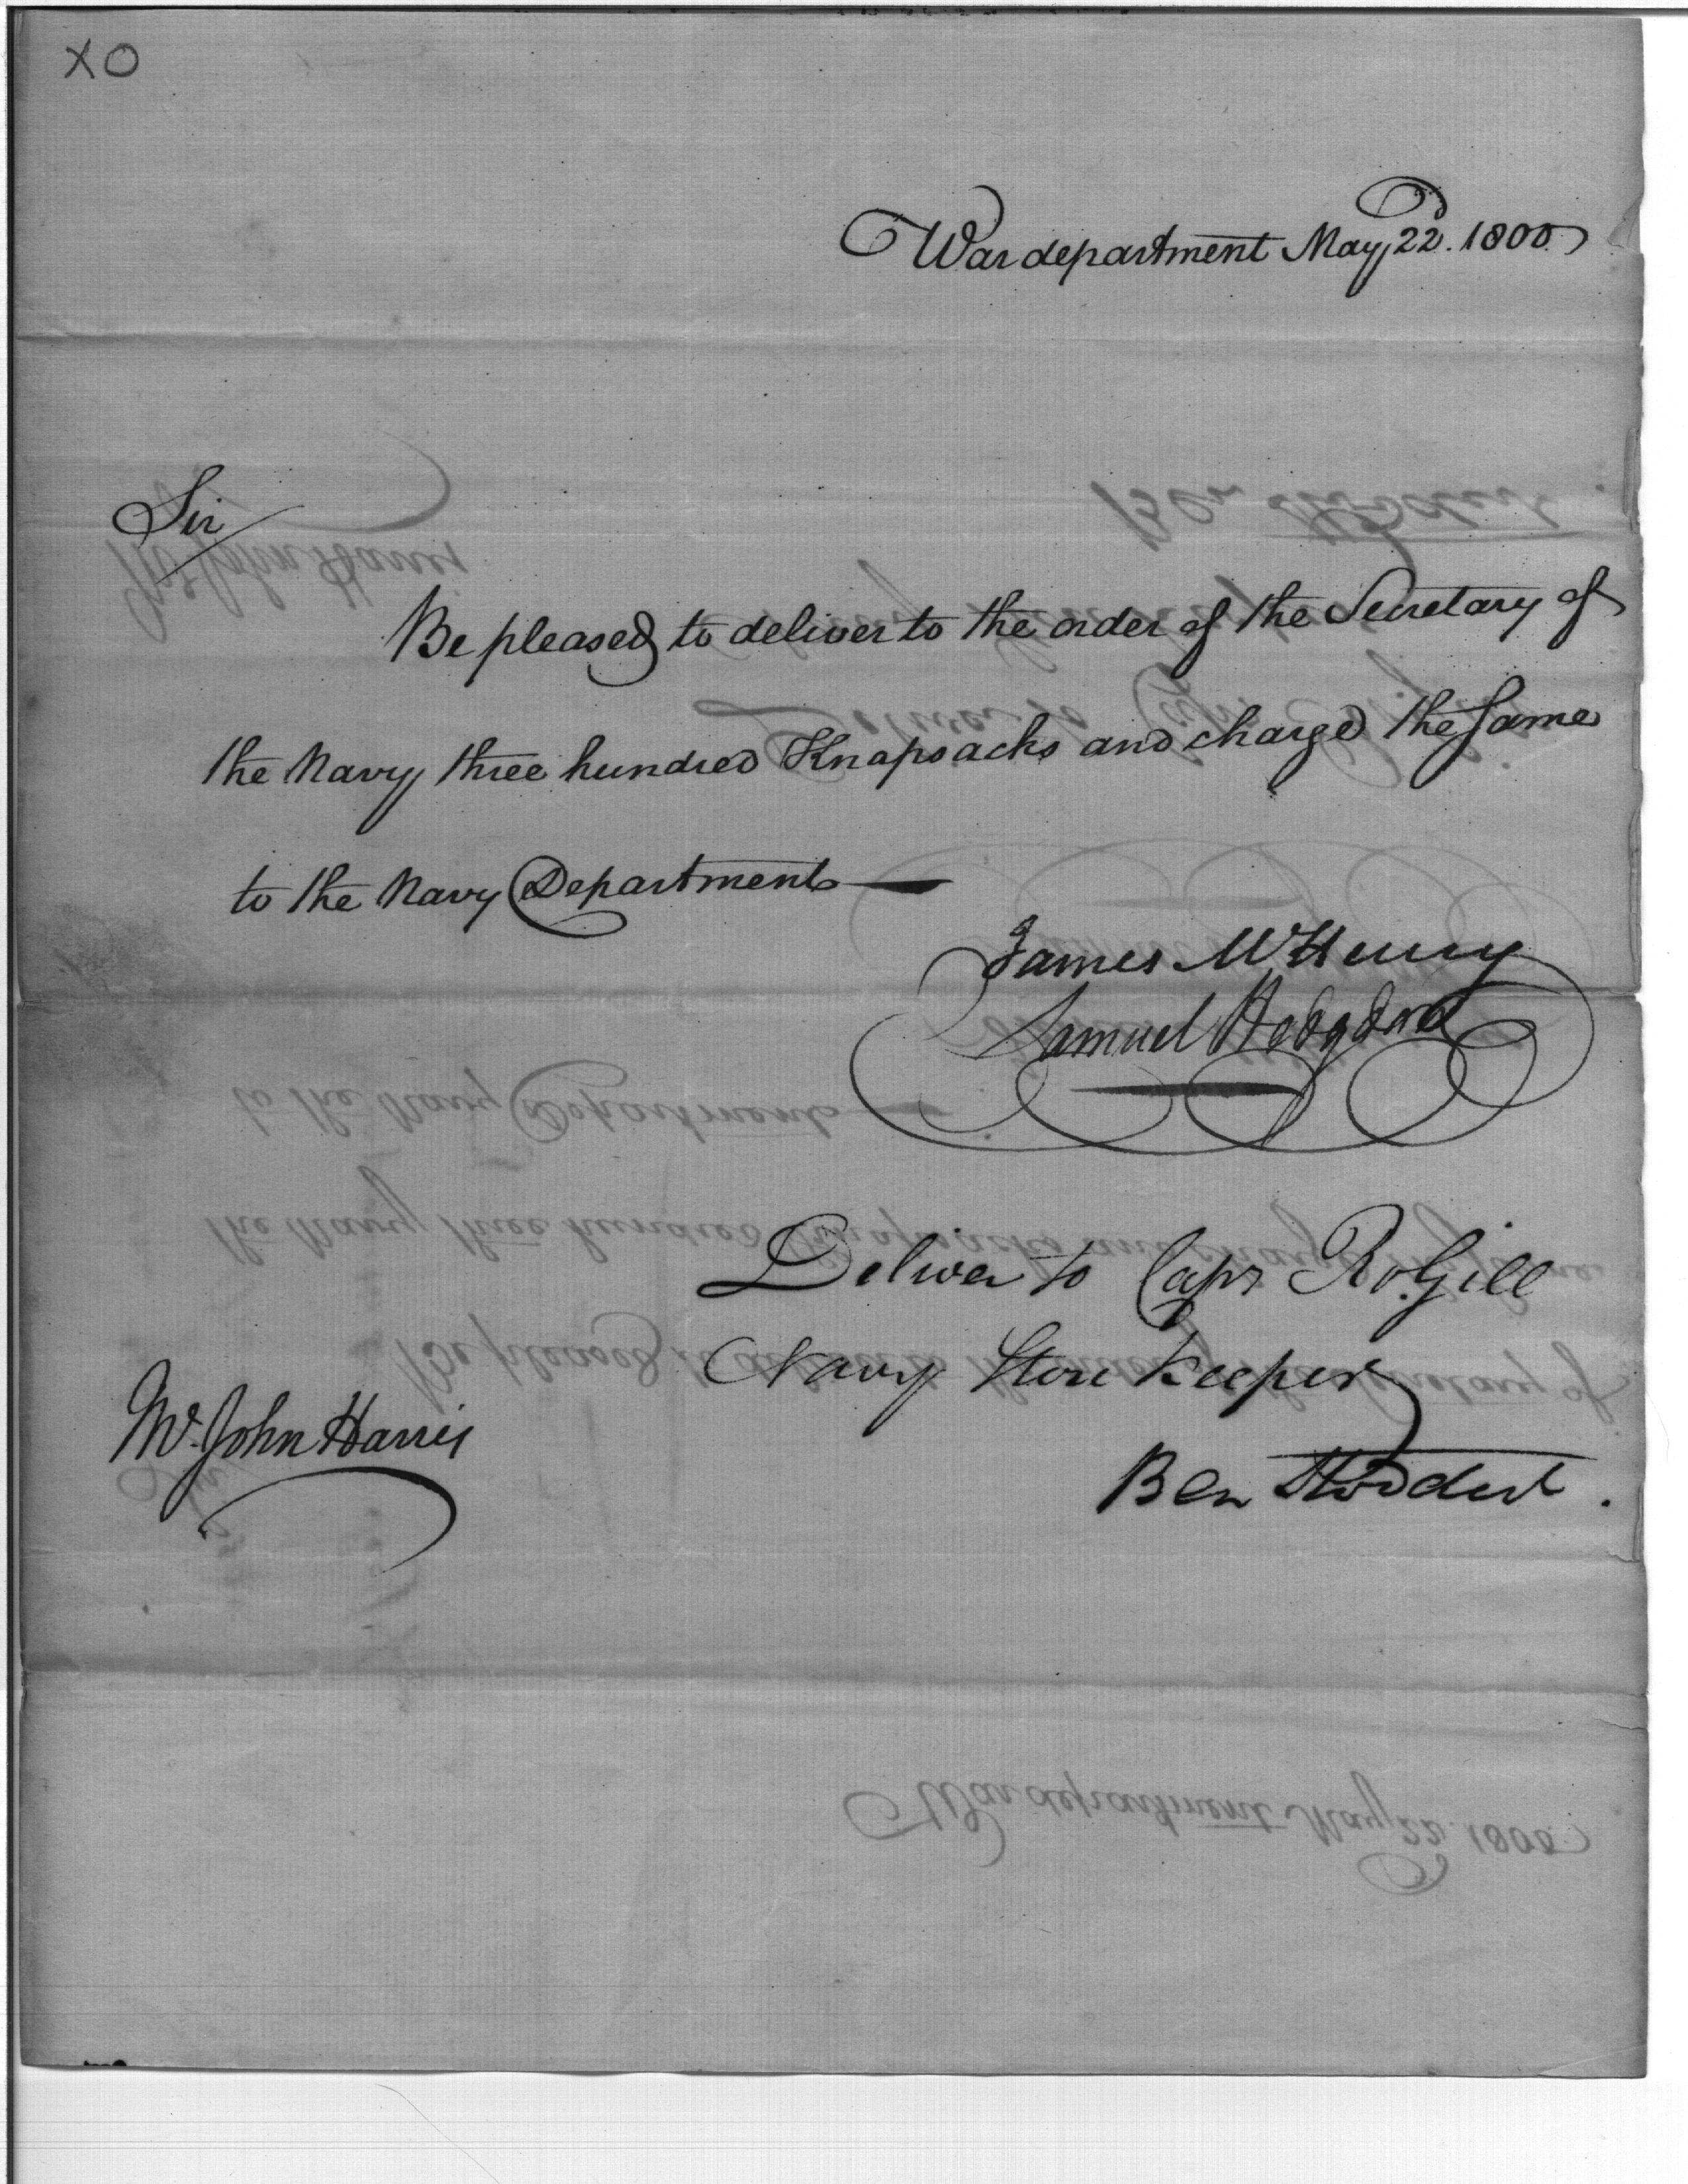 XO
War department May 22. 1800
Sir
Be pleased to deliver to the order of the Secretary of
the Navy three hundred Knapsacks and charge the same
to the Navy Department
James McHenry
Samuel Hodgdon
Deliver to Capt Ro. Gill
Navy Store Keeper
Mr. John Harris
Ben Stoddert.